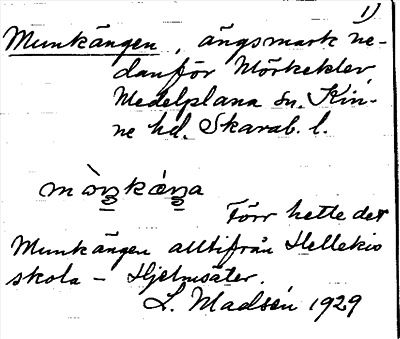 1)
Munkängen, ängsmark ne-
danför Mörkeklev,
Medelplana sn. Kin-
ne hd. Skarab. l.
Förr hette det
Munkängen alltifrån Hellekis
skola - Hjelmsäter.
L. Madsén 1929